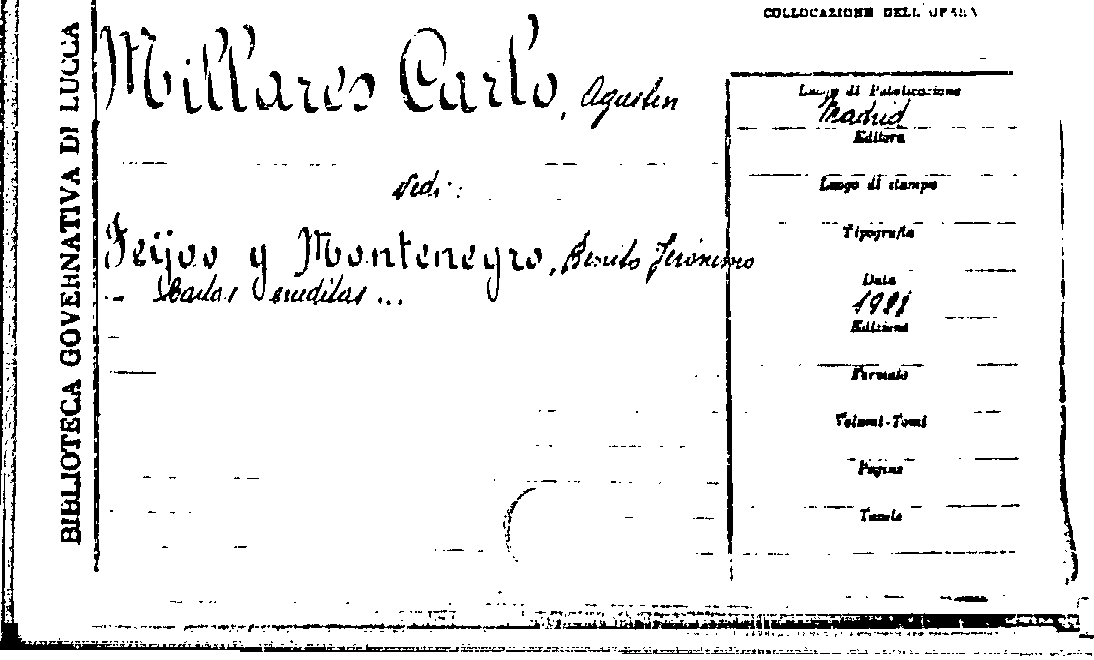 COLLOCAZIONE DELL'OPERA
BIBLIOTECA GOVERNATIVA DI LUCCA
Millares Carlo, Agustin
Vedi:
Feijoo y Montenegro, Benito Jerónimo
- Cartas eruditas...
Luogo di Pubblicazione
Madrid
Editore
Luogo di stampa
Tipografia
Data
Edizione
Formato
Volumi-Tomi
Pagine
Tavole